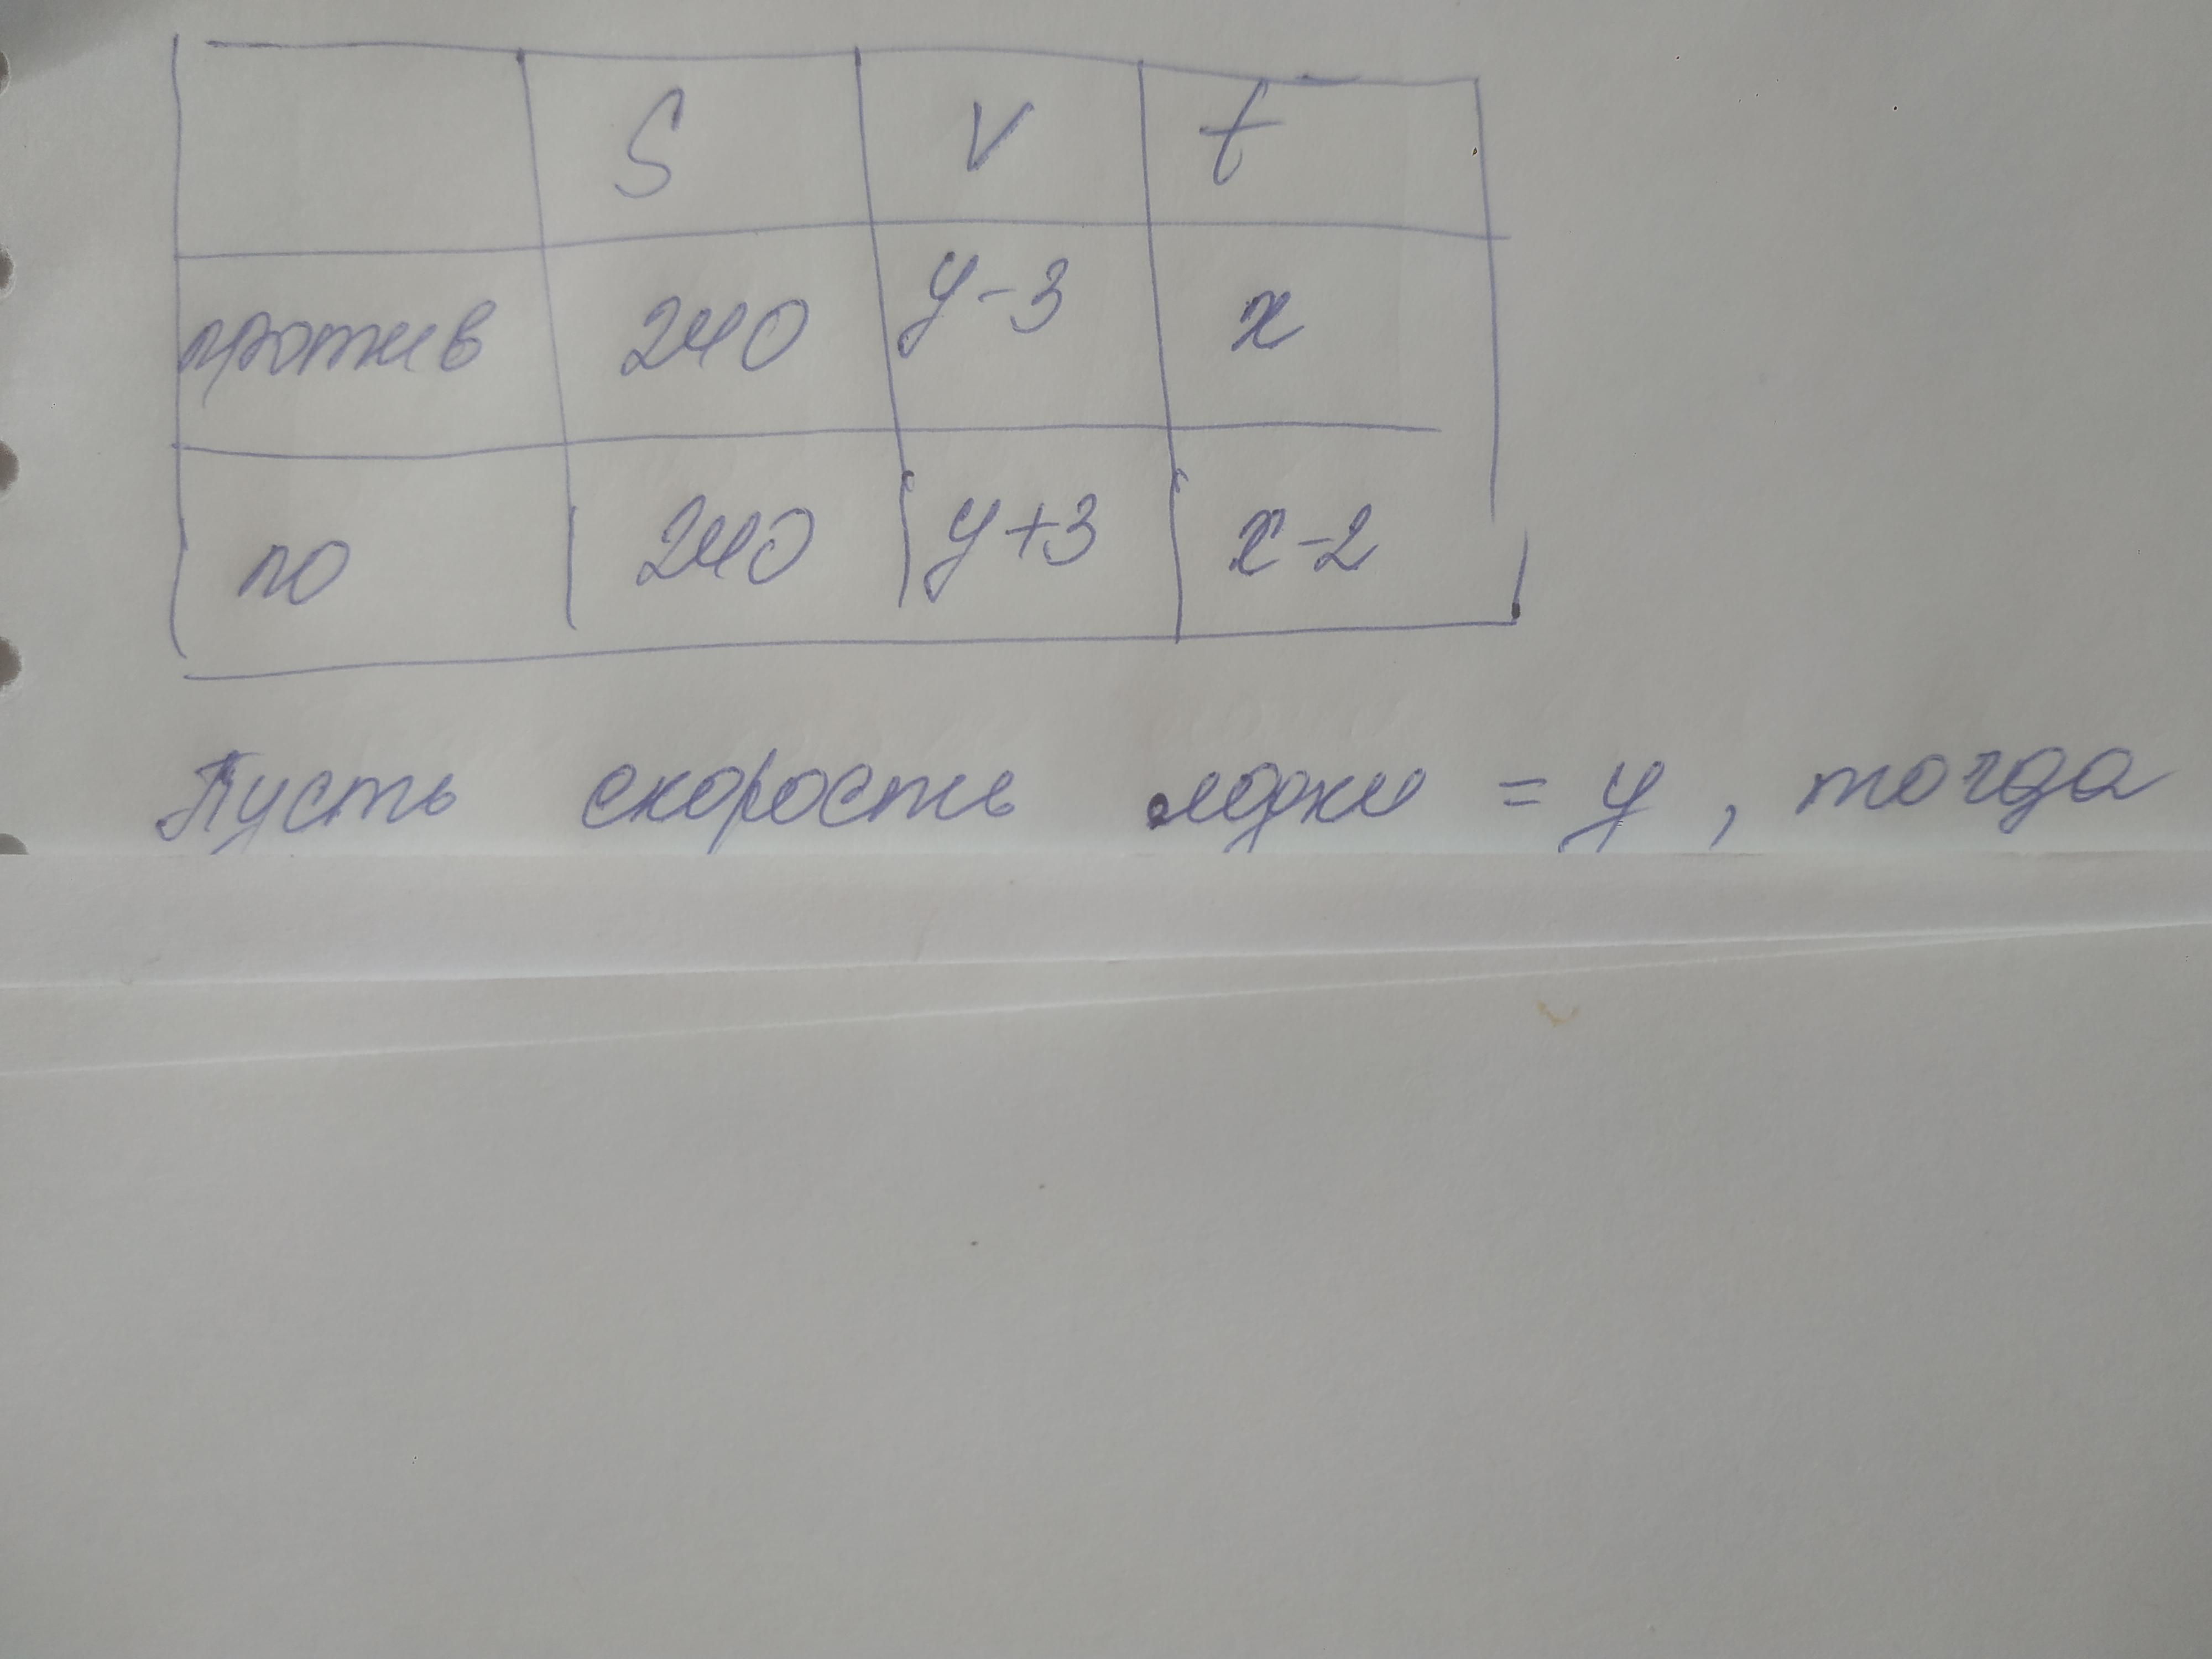 S V t
против 240 y-3 x
по 240 y+3 x-2
Пусть скорость лодки = y, тогда